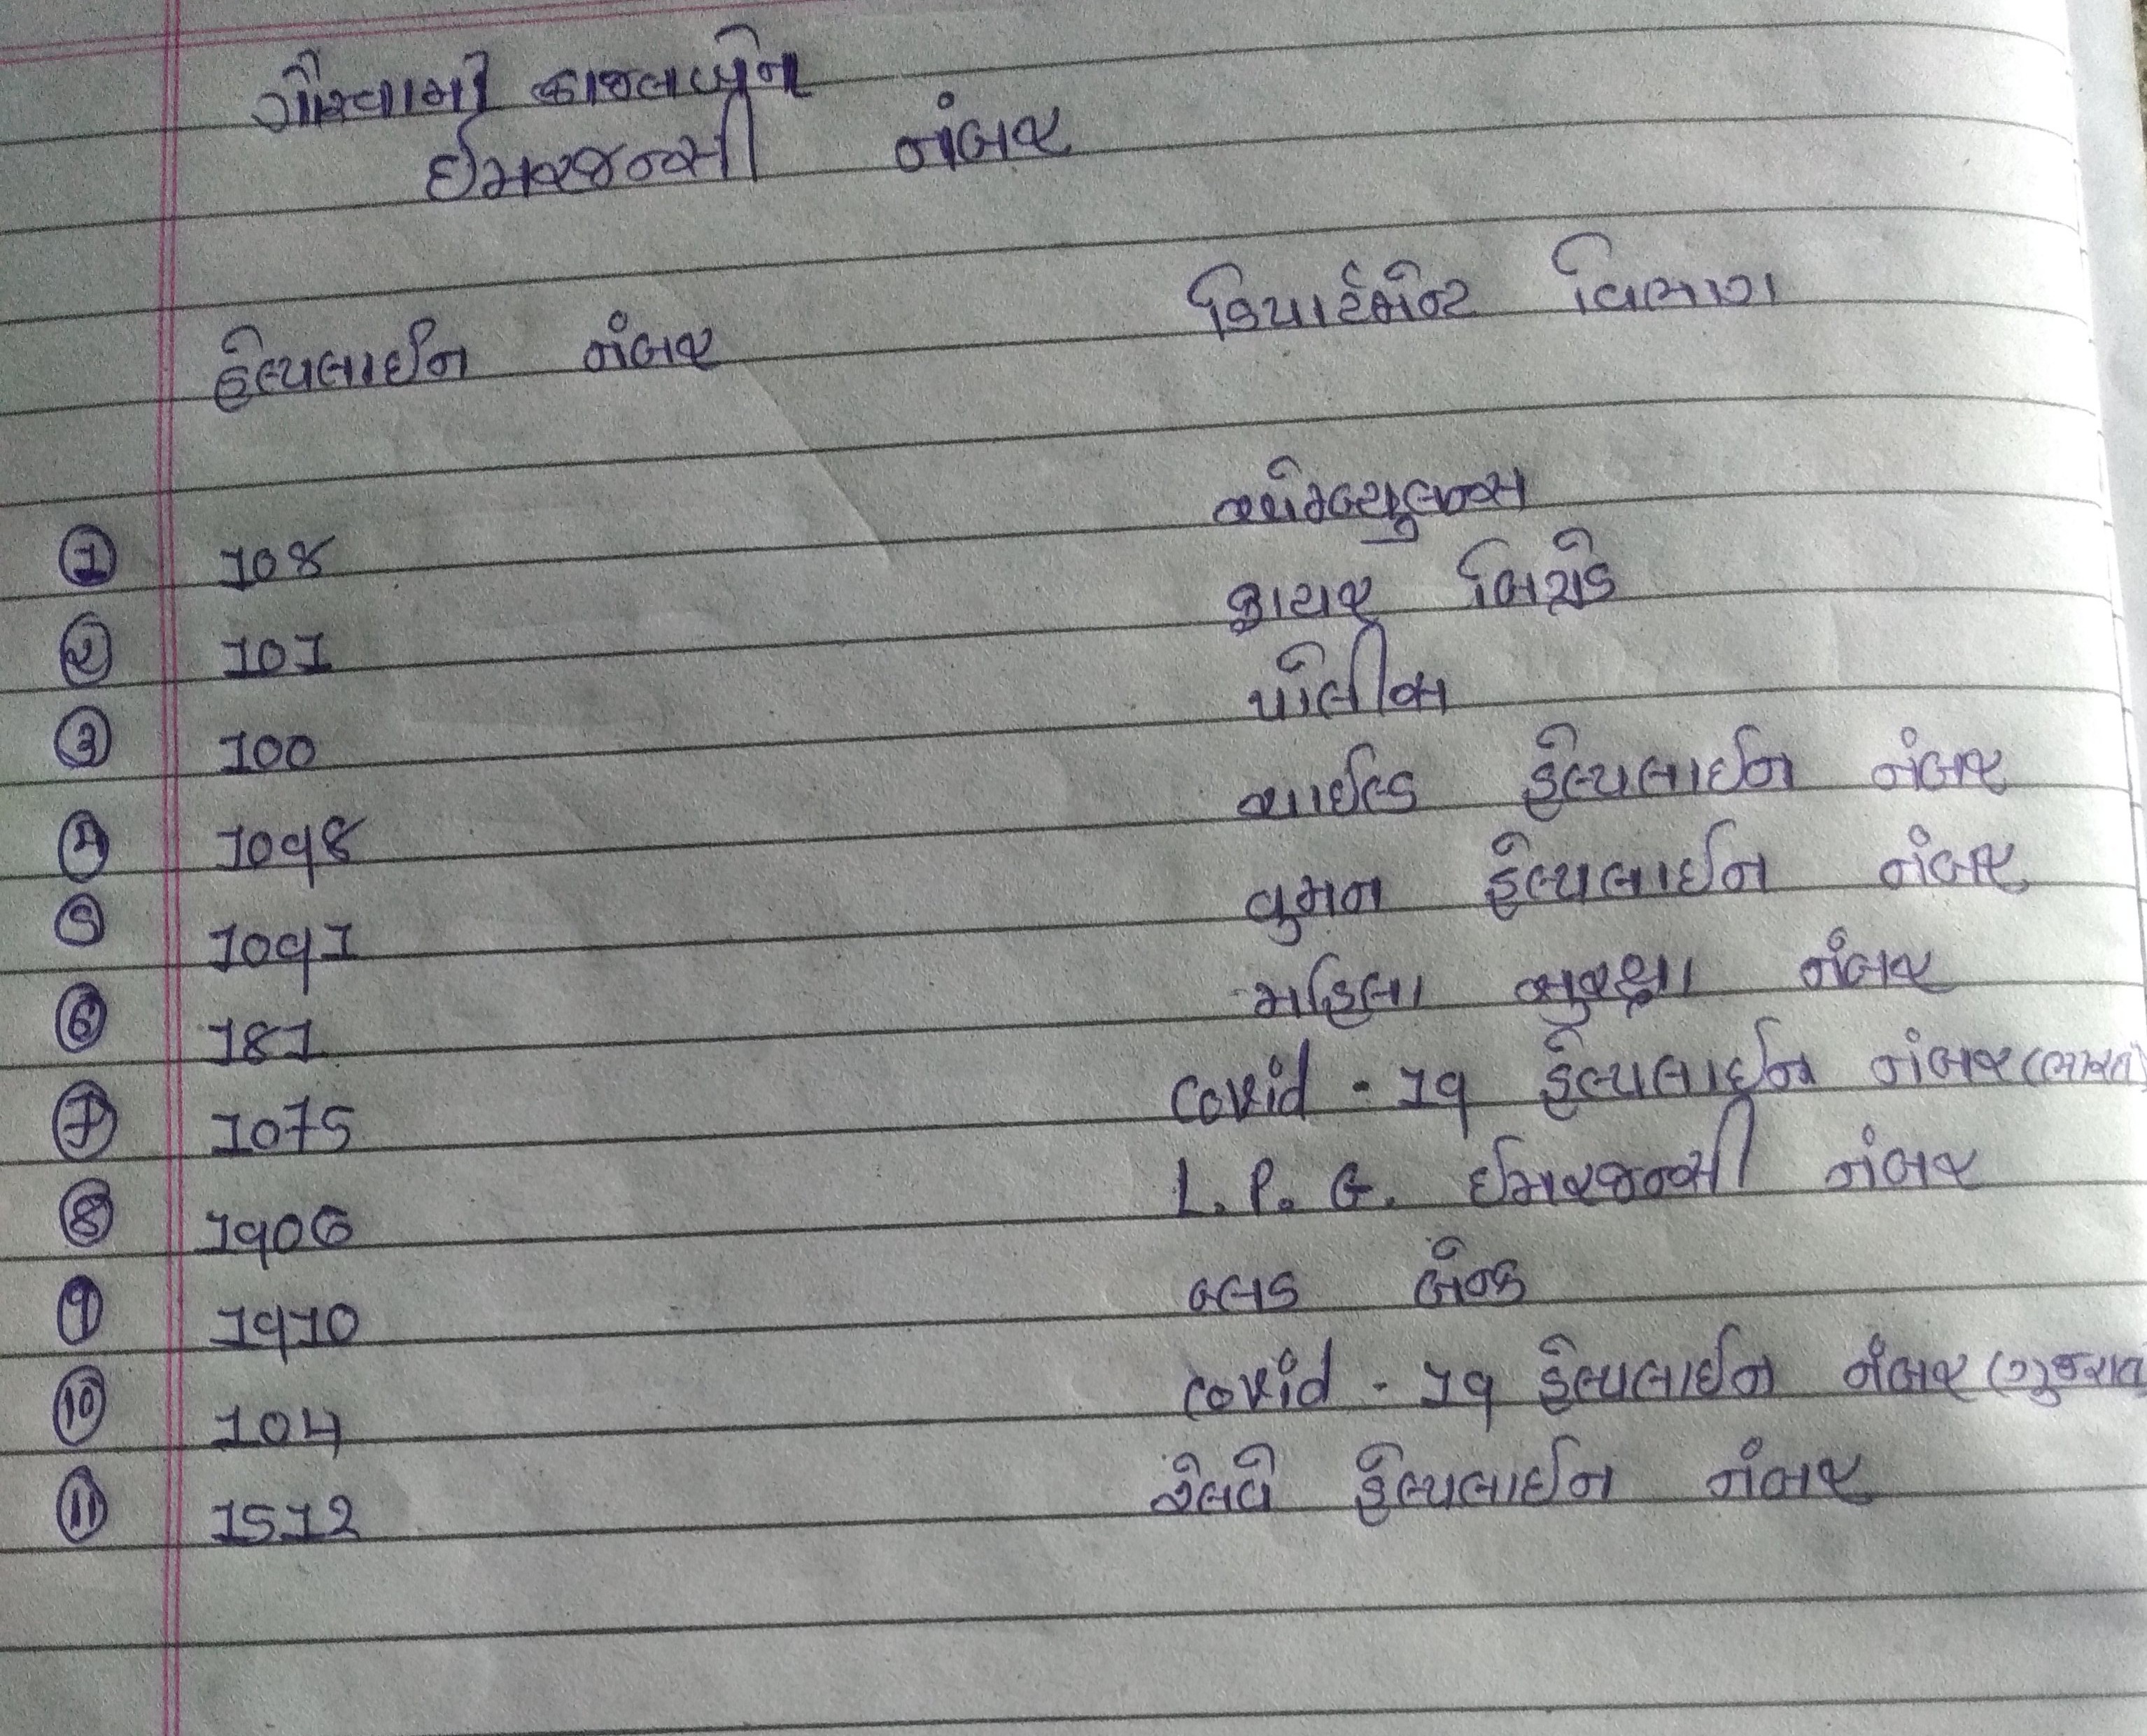 ગૌસ્વામી કાજલબેન
ઈમરજન્સી નંબર
હેલ્પલાઈન નંબર ડિપાર્ટમેન્ટ વિભાગ
① 108 એમ્બ્યુલન્સ
② 101 ફાયર બ્રિગેડ
③ 100 પોલીસ
④ 1098 ચાઈલ્ડ હેલ્પલાઈન નંબર
⑤ 1091 વુમન હેલ્પલાઈન નંબર
⑥ 181 મહિલા સુરક્ષા નંબર
⑦ 1075 covid - 19 હેલ્પલાઈન નંબર (ભારત)
⑧ 1906 L.P.G. ઈમરજન્સી નંબર
⑨ 1910 બ્લડ બેન્ક
⑩ 104 covid - 19 હેલ્પલાઈન નંબર (ગુજરાત
⑪ 1512 રેલવે હેલ્પલાઈન નંબર